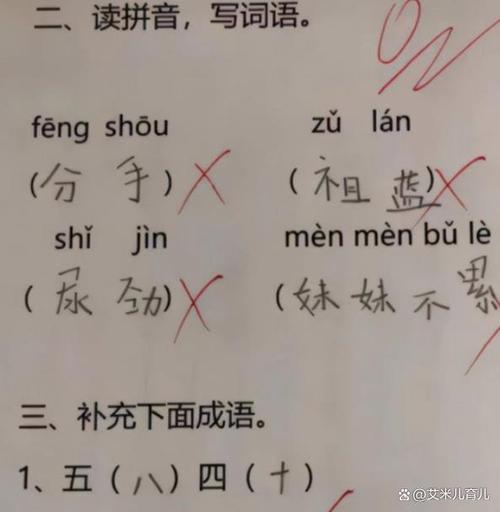 二、读拼音，写词语。
fēng shōu zǔ lán
(分 手) (祖 蓝)
shǐ jìn mèn mèn bǔ lè
(尿 劲) (妹 妹 不 累
三、补充下面成语。
1、五（八）四（十）
@艾米儿育儿